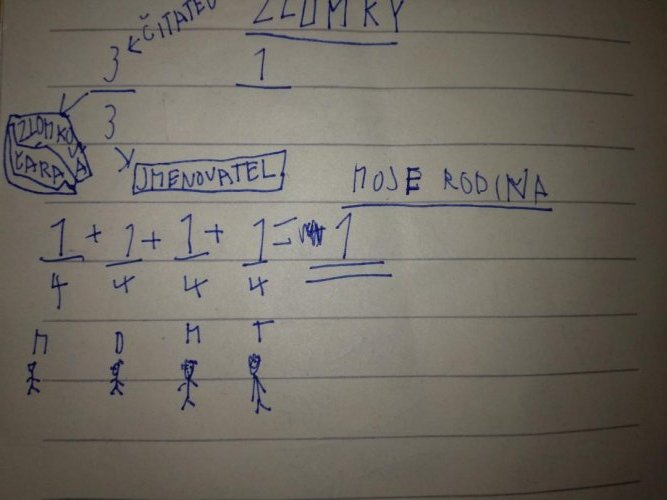 ZLOMKY
ČITATEL
3 1
3
ZLOMKOVÁ
ČÁRA
JMENOVATEL
MOJE RODINA
1 + 1 + 1 + 1 = 1
4 4 4 4
M D M T